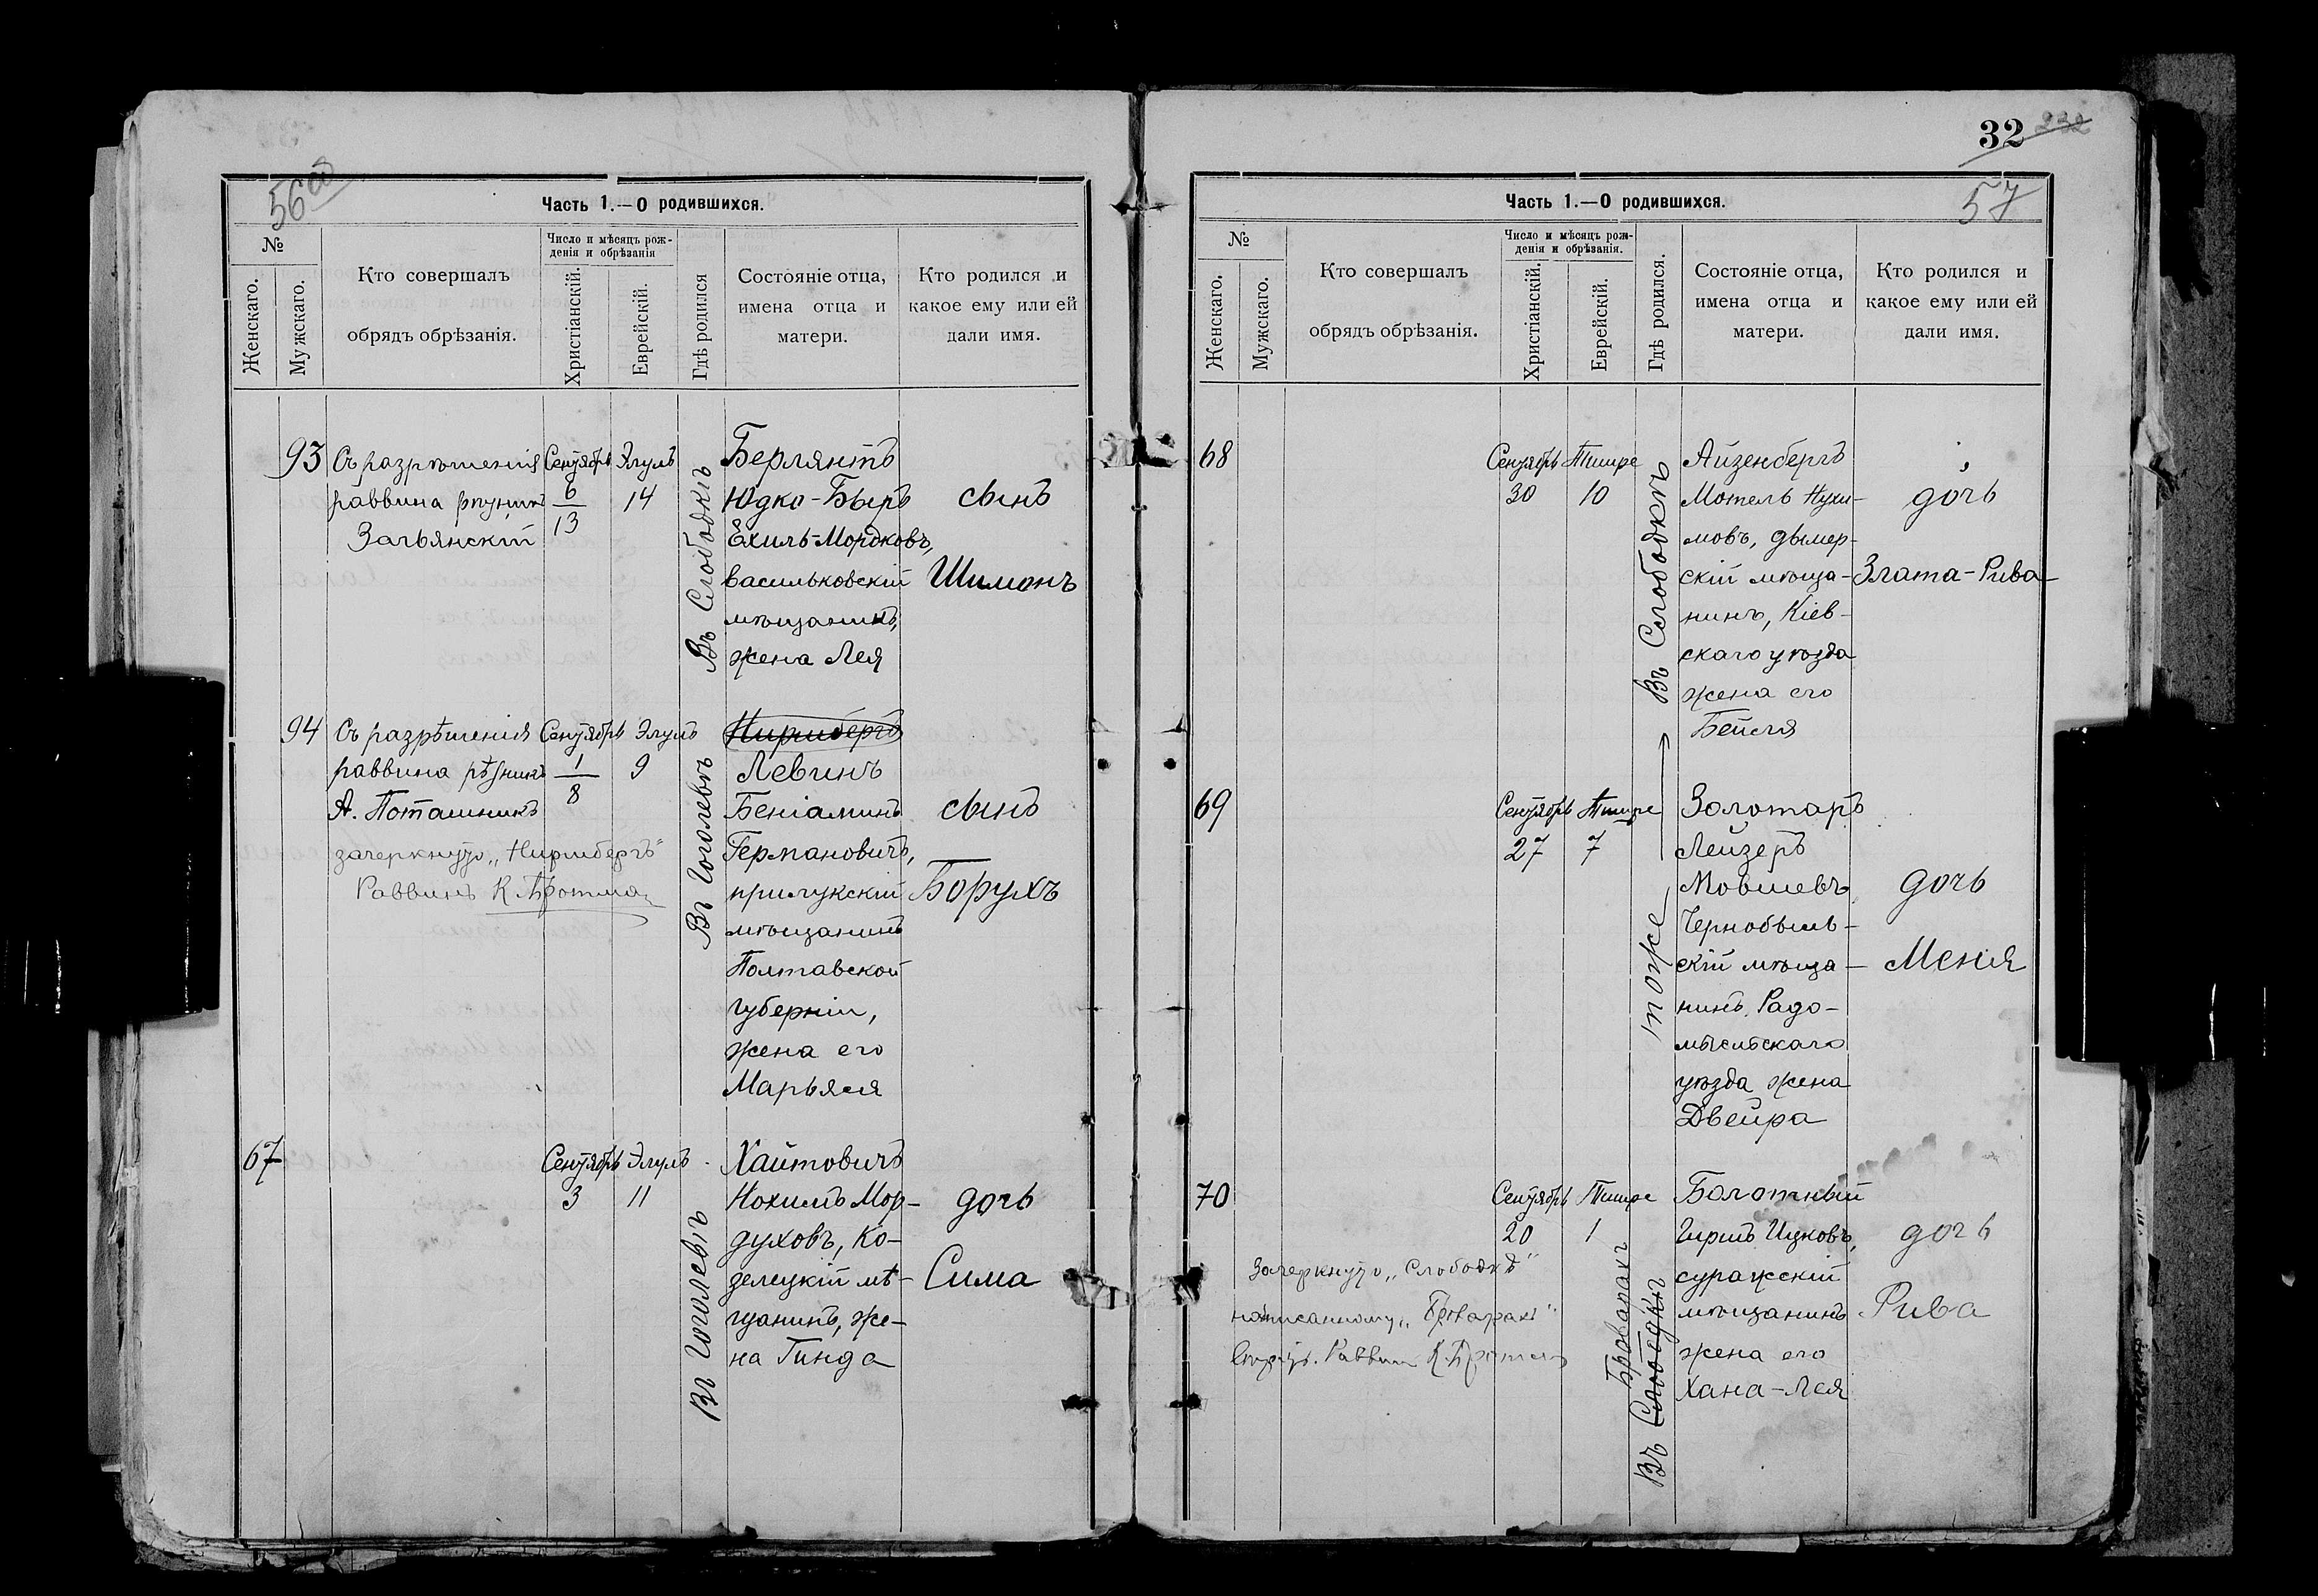 56 об
Часть 1.—О родившихся.
№
Женскаго.
Мужскаго.
Кто совершалъ
обрядъ обрѣзанія.
Число и мѣсяцъ рож-
денія и обрѣзанія
Христіанскій.
Еврейскій.
Гдѣ родился
Состояніе отца,
имена отца и
матери.
Кто родился и
какое ему или ей
дали имя.
93
Съ разрѣшенія
раввина рѣзникъ
Сентябрь
6
13
Элулъ
14
Въ Слободкѣ
Берлянтъ
Юдко-Беръ
Ехиль-Мордковъ,
васильковскій
мѣщанинъ,
жена Лея
сынъ
Шимонъ
94
Съ разрѣшенія
раввина рѣзникъ
А. Поташникъ
зачеркнуто „Ниринбергъ"
Раввинъ
Сентябрь
1
8
Элулъ
9
Въ Гоголевѣ
Ниринбергъ
Левинъ
Беніаминъ
Германовичъ,
прилукскій
мѣщанинъ
Полтавской
губерніи,
жена его
Марьяся
сынъ
Борухъ
67
Сентябрь
3
Элулъ
11
Въ Гоголевѣ
Хайтовичъ
Нохимъ Мор-
духовъ, Ко-
зелецкій мѣ-
щанинъ, же-
на Гинда
дочь
Сима
32 232
57
Часть 1.—О родившихся.
№
Женскаго.
Мужскаго.
Кто совершалъ
обрядъ обрѣзанія.
Число и мѣсяцъ рож-
денія и обрѣзанія.
Христіанскій.
Еврейскій.
Гдѣ родился.
Состояніе отца,
имена отца и
матери.
Кто родился и
какое ему или ей
дали имя.
68
Сентябрь
30
Тишре
10
Въ Слободкѣ
Айзенбергъ
Мотель Нухи-
мовъ, дымер-
скій мѣща-
нинъ, Кіев-
скаго уѣзда
жена его
Бейля
дочь
Злата-Рива
69
Сентябрь
27
Тишре
7
тоже
Золотаръ
Лейзеръ
Мовшевъ
Чернобыль-
скій мѣща-
нинъ Радо-
мысльскаго
уѣзда жена
Двейра
дочь
Меня
70
Зачеркнуто „Слободкѣ"
написанному „Броварахъ"
вѣрить. Раввинъ
Сентябрь
20
Тишре
1
Броварахъ
Въ Слободкѣ
Болотный
Гиршъ Ицковъ,
суражскій
мѣщанинъ
жена его
Хана-Лея
дочь
Рива